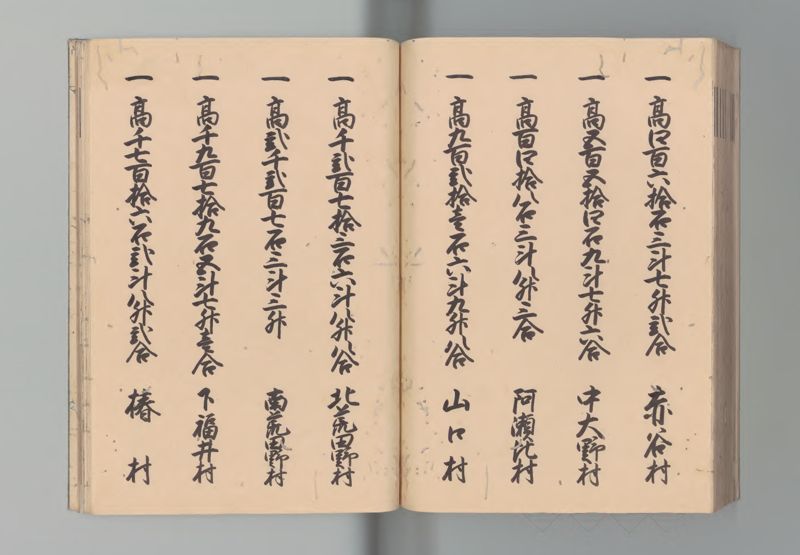 一 高四百六拾石三斗七升弐合 赤谷村
一 高五百五拾四石九斗七升六合 中大野村
一 高百四拾八石三斗八升三合 阿瀬比村
一 高九百弐拾壱石六斗九升八合 山口村
一 高千弐百七拾三石六斗八升八合 北荒田野村
一 高弐千弐百七石三斗三升 南荒田野村
一 高千九百七拾九石五斗七升壱合 下福井村
一 高千七百拾六石弐斗八升弐合 椿村